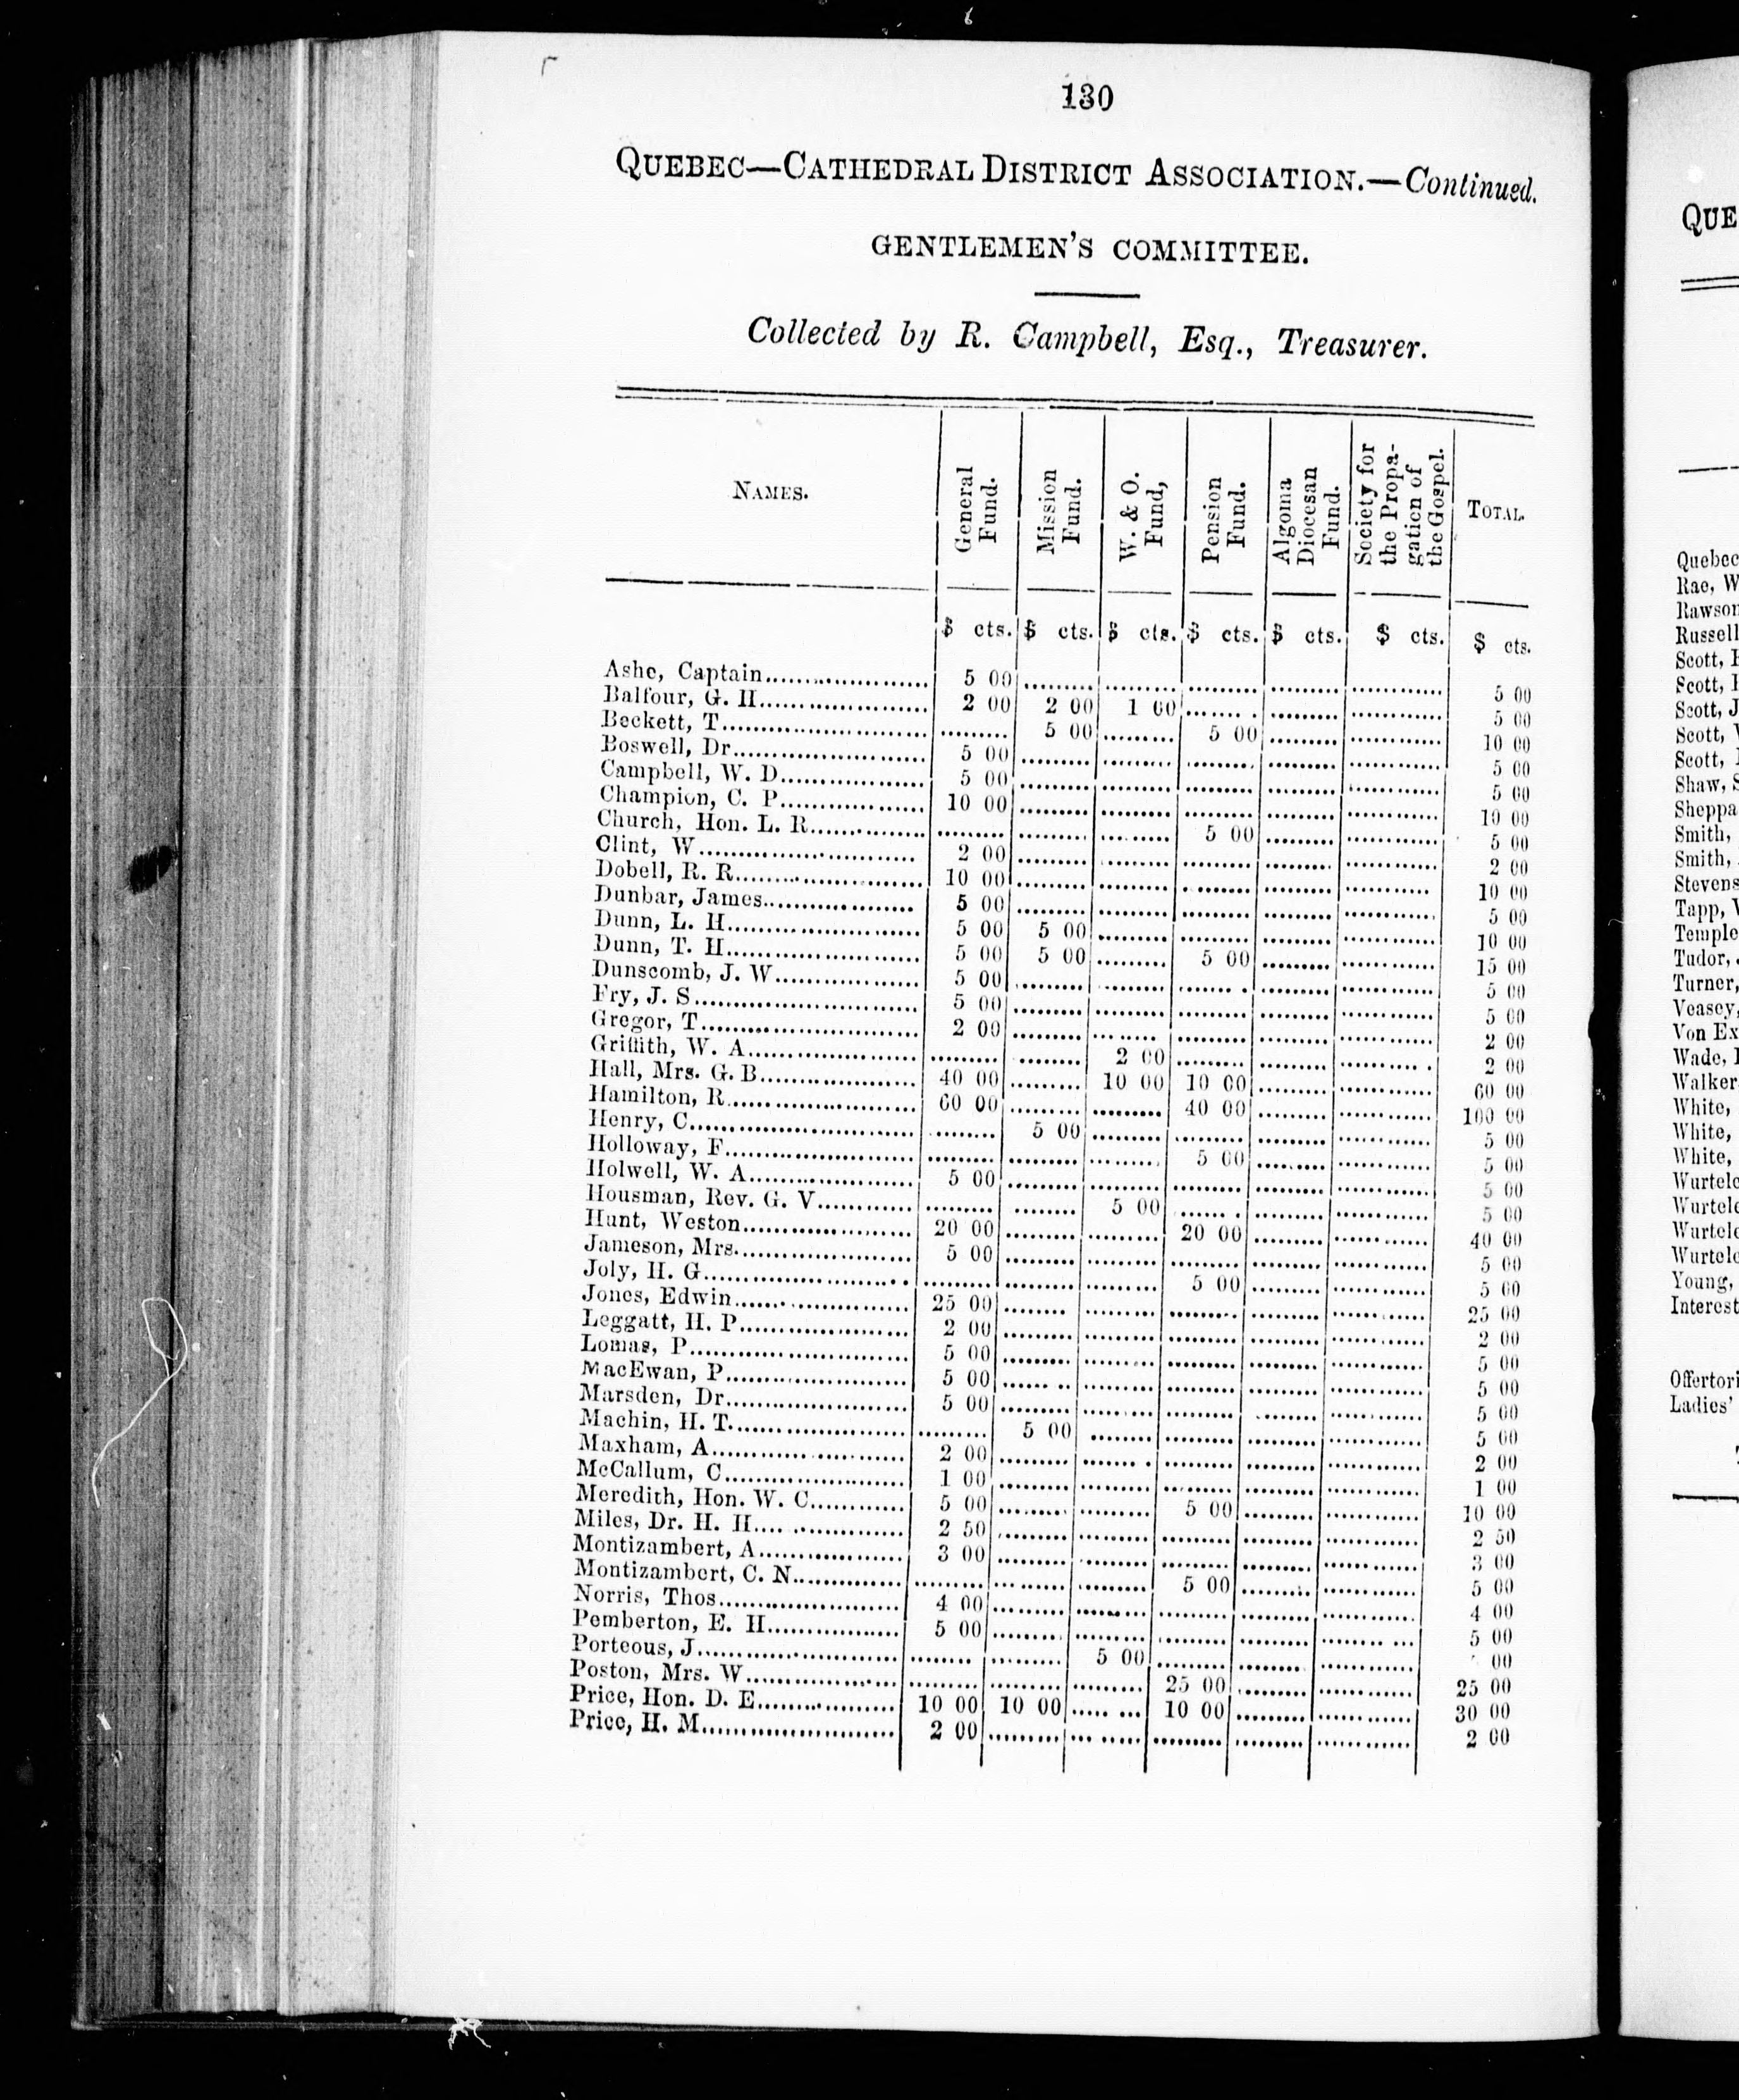 130
QUEBEC—CATHEDRAL DISTRICT ASSOCIATION.—Continued.
GENTLEMEN'S COMMITTEE.
Collected by R. Campbell, Esq., Treasurer.
NAMES. General Fund. Mission Fund. W. & O. Fund, Pension Fund. Algoma Diocesan Fund. Society for the Propagation of the Gospel. TOTAL.
$ cts. $ cts. $ cts. $ cts. $ cts. $ cts. $ cts.
Ashe, Captain 5 00 5 00
Balfour, G. H 2 00 2 00 1 00 5 00
Beckett, T 5 00 5 00 10 00
Boswell, Dr 5 00 5 00
Campbell, W. D 5 00 5 00
Champion, C. P 10 00 10 00
Church, Hon. L. R 5 00 5 00
Clint, W 2 00 2 00
Dobell, R. R 10 00 10 00
Dunbar, James 5 00 5 00
Dunn, L. H 5 00 5 00 10 00
Dunn, T. H 5 00 5 00 5 00 15 00
Dunscomb, J. W 5 00 5 00
Fry, J. S 5 00 5 00
Gregor, T 2 00 2 00
Griffith, W. A 2 00 2 00
Hall, Mrs. G. B 40 00 10 00 10 00 60 00
Hamilton, R 60 00 40 00 100 00
Henry, C 5 00 5 00
Holloway, F 5 00 5 00
Holwell, W. A 5 00 5 00
Housman, Rev. G. V 5 00 5 00
Hunt, Weston 20 00 20 00 40 00
Jameson, Mrs. 5 00 5 00
Joly, H. G 5 00 5 00
Jones, Edwin 25 00 25 00
Leggatt, H. P 2 00 2 00
Lomas, P 5 00 5 00
MacEwan, P 5 00 5 00
Marsden, Dr 5 00 5 00
Machin, H. T. 5 00 5 00
Maxham, A 2 00 2 00
McCallum, C 1 00 1 00
Meredith, Hon. W. C 5 00 5 00 10 00
Miles, Dr. H. H 2 50 2 50
Montizambert, A 3 00 3 00
Montizambert, C. N 5 00 5 00
Norris, Thos 4 00 4 00
Pemberton, E. H 5 00 5 00
Porteous, J 5 00 00
Poston, Mrs. W 25 00 25 00
Price, Hon. D. E 10 00 10 00 10 00 30 00
Price, H. M 2 00 2 00
QUE
Quebec
Rae, W
Rawson
Russell
Scott,
Scott,
Scott, J
Scott,
Scott,
Shaw, S
Sheppa
Smith,
Smith,
Stevens
Tapp,
Temple
Tudor,
Turner,
Veasey,
Von Ex
Wade,
Walker
White,
White,
White,
Wurtele
Wurtele
Wurtele
Wurtele
Young,
Interest
Offertori
Ladies'